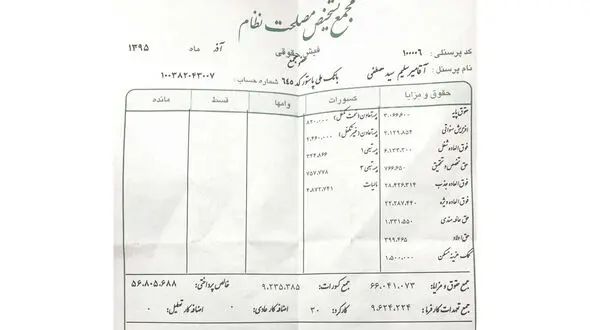 مجمع تشخیص مصلحت نظام
کد پرسنلی : ۱۰۰۰۰۶ فیش حقوقی آذر ماه ۱۳۹۵
نام پرسنل : آقامیرسلیم سید مصطفی بانک ملی پاستور کد ۶۴۵ شماره حساب : ۱۰۰۳۸۲۰۴۳۰۰۷
حقوق و مزایا کسورات وامها قسط مانده
حقوق پایه ۳.۰۶۶.۶۰۰
۸۲۰.۰۰۰
افزایش سنواتی ۳.۱۲۹.۸۵۴
۲.۴۶۰.۰۰۰
فوق العاده شغل ۶.۱۳۳.۲۰۰
۳۲۴.۸۶۶
حق تخصص و تحقیق ۷۶۶.۶۵۰
۷۵۷.۷۷۸
فوق العاده جذب ۲۸.۴۲۶.۳۱۴
مالیات ۴.۸۷۲.۷۴۱
فوق العاده ویژه ۲۲.۲۸۷.۴۴۰
حق عائله مندی ۱.۳۳۱.۵۵۰
حق اولاد ۳۹۹.۴۶۵
کمک هزینه مسکن ۱.۵۰۰.۰۰۰
جمع حقوق و مزایا: ۶۶.۰۴۱.۰۷۳ جمع کسورات: ۹.۲۳۵.۳۸۵ خالص پرداختی: ۵۶.۸۰۵.۶۸۸
جمع تعهدات کارفرما: ۹.۶۲۴.۲۲۴ کارکرد: ۳۰ اضافه کار عادی: ۰ اضافه کار تعطیل: ۰